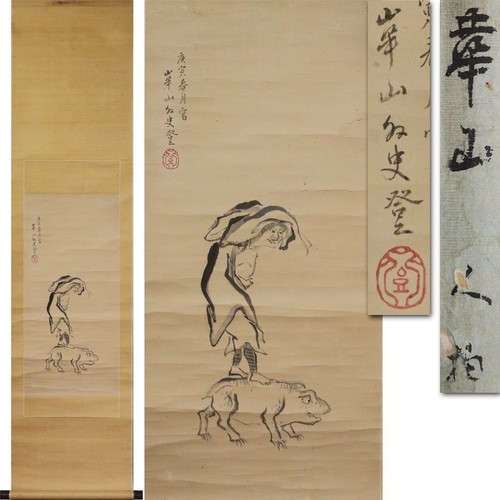 庚寅春月寫
崋山外史登
崋山外史登
登
華山人物